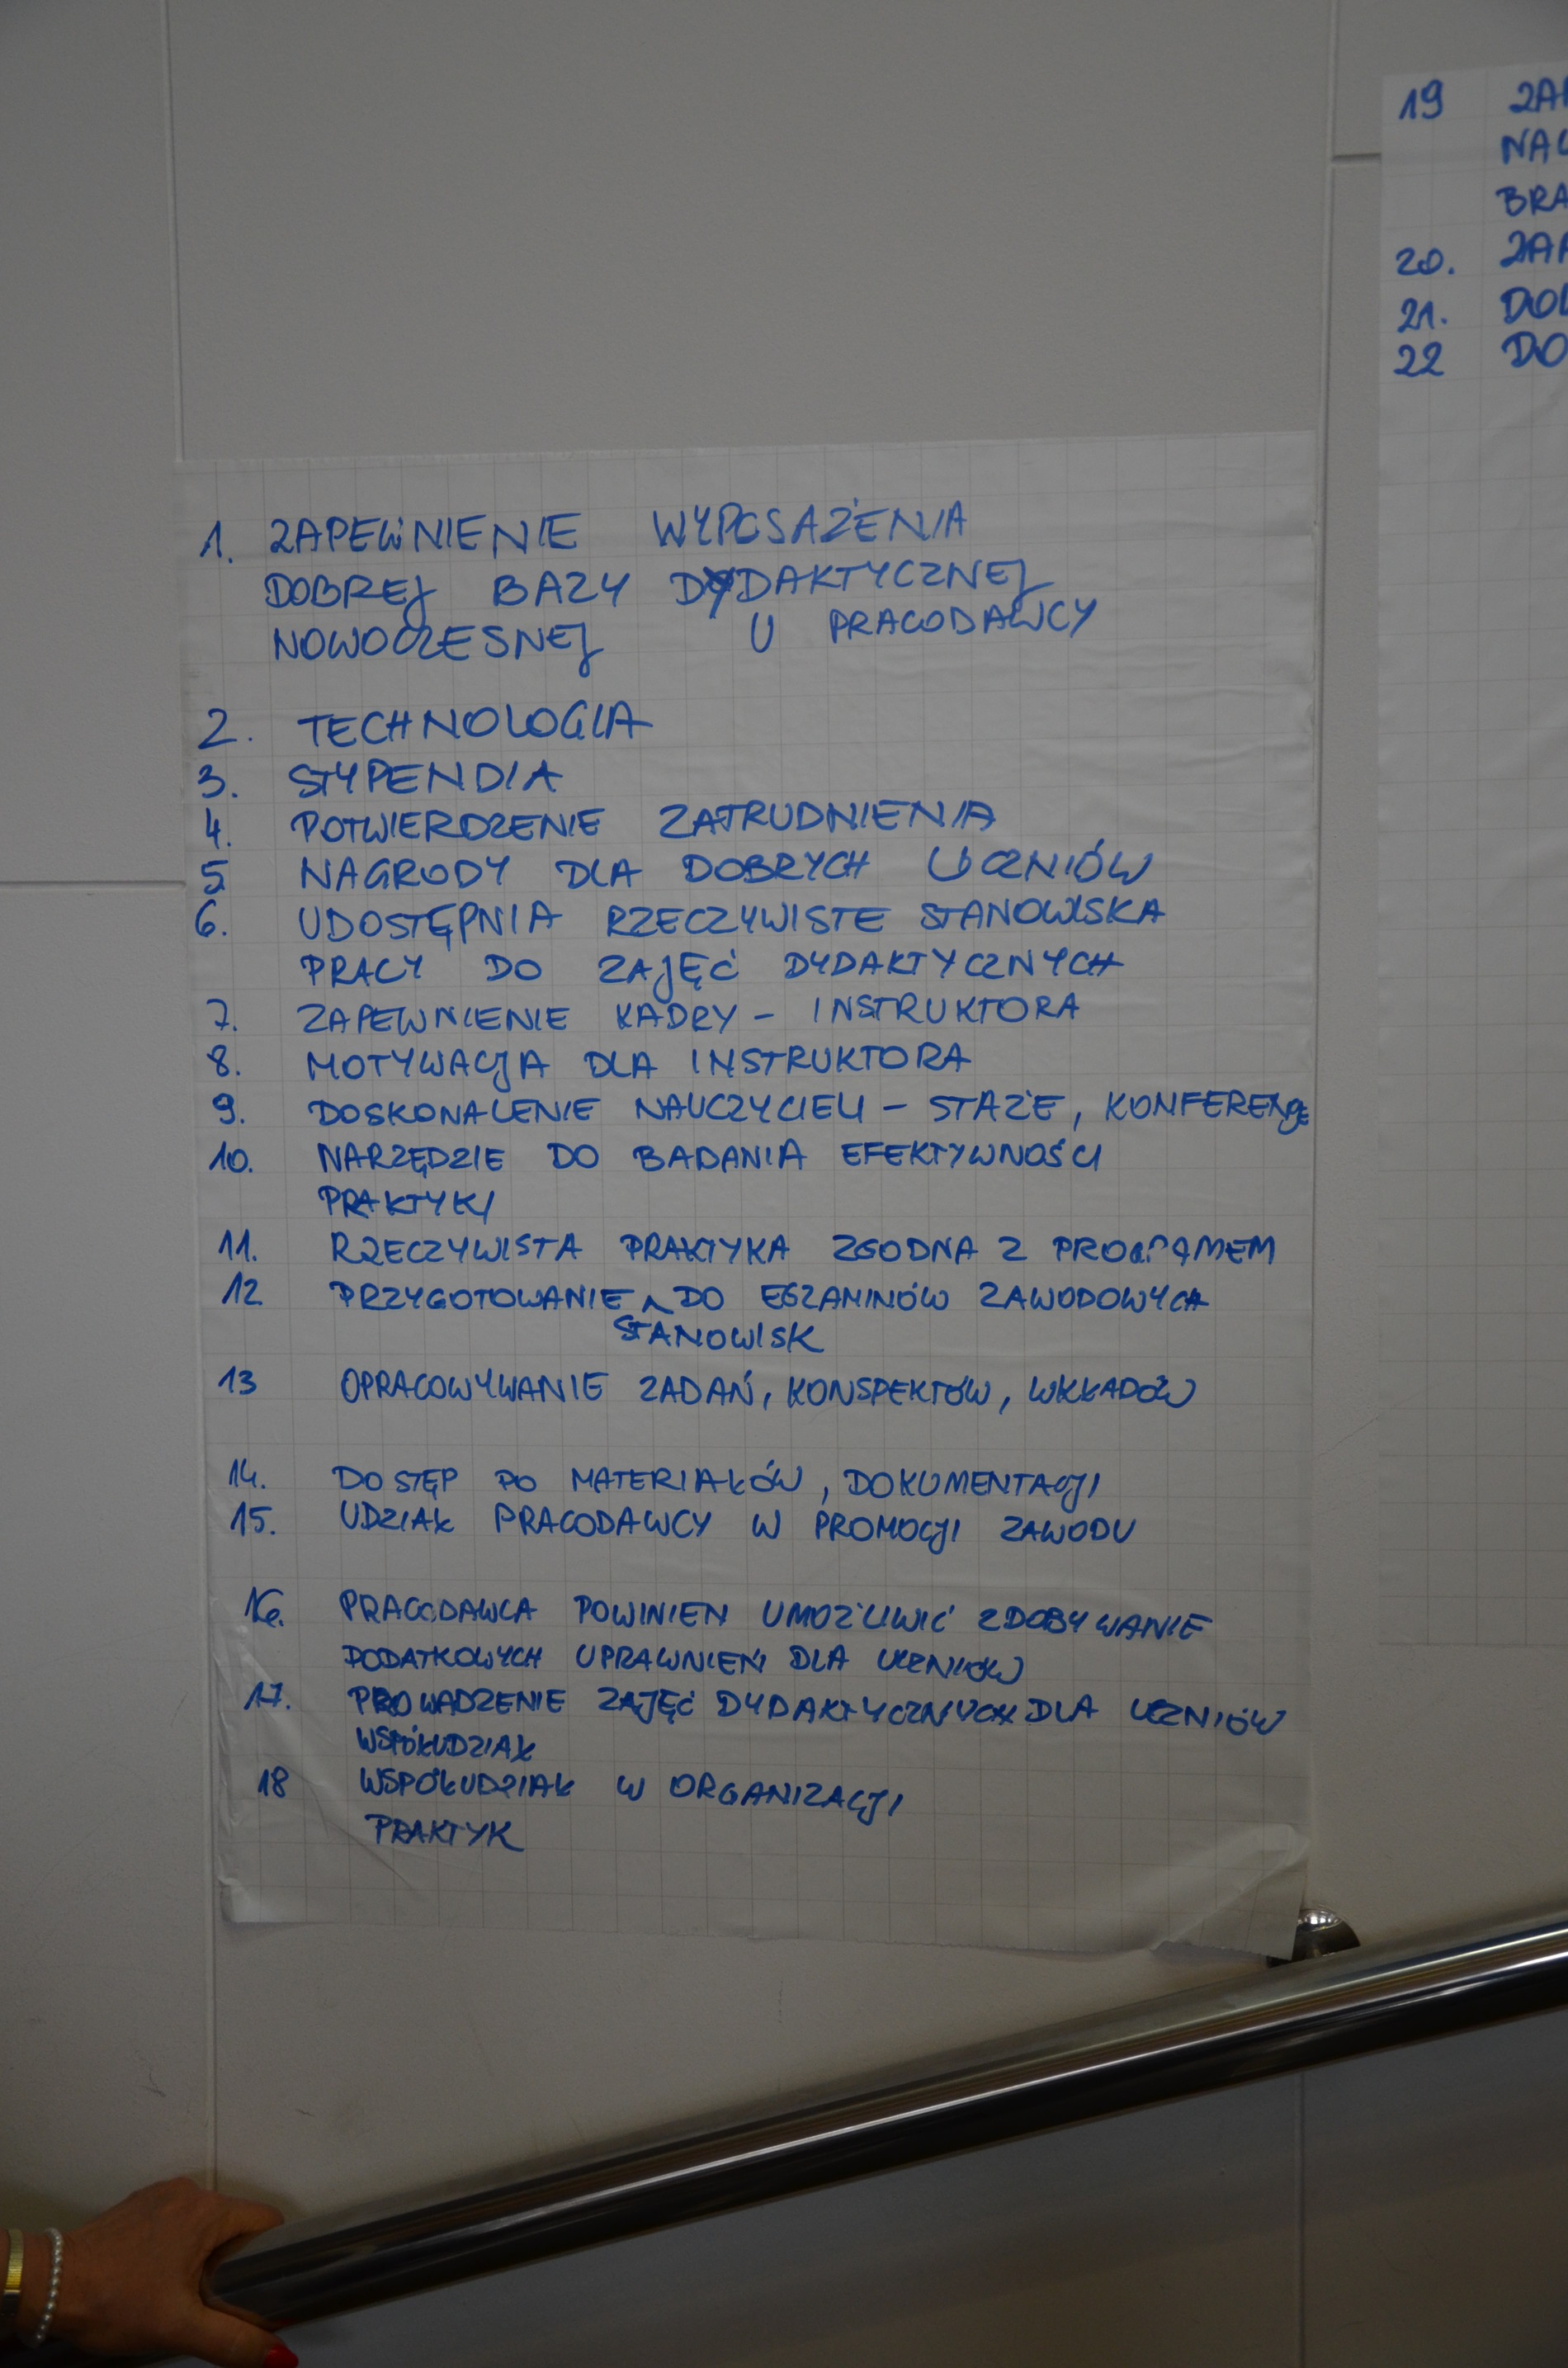 1. ZAPEWNIENIE WYPOSAŻENIA
DOBREJ BAZY DYDAKTYCZNEJ
NOWOCZESNEJ U PRACODAWCY
2. TECHNOLOGIA
3. STYPENDIA
4. POTWIERDZENIE ZATRUDNIENIA
5 NAGRODY DLA DOBRYCH UCZNIÓW
6. UDOSTĘPNIA RZECZYWISTE STANOWISKA
PRACY DO ZAJĘĆ DYDAKTYCZNYCH
7. ZAPEWNIENIE KADRY - INSTRUKTORA
8. MOTYWACJA DLA INSTRUKTORA
9. DOSKONALENIE NAUCZYCIELI - STAŻE, KONFERENCJE
10. NARZĘDZIE DO BADANIA EFEKTYWNOŚCI
PRAKTYKI
11. RZECZYWISTA PRAKTYKA ZGODNA Z PROGRAMEM
12 PRZYGOTOWANIE DO EGZAMINÓW ZAWODOWYCH
STANOWISK
13 OPRACOWYWANIE ZADAŃ, KONSPEKTÓW, WKŁADÓW
14. DOSTĘP DO MATERIAŁÓW, DOKUMENTACJI
15. UDZIAŁ PRACODAWCY W PROMOCJI ZAWODU
16. PRACODAWCA POWINIEN UMOŻLIWIĆ ZDOBYWANIE
DODATKOWYCH UPRAWNIEŃ DLA UCZNIÓW
17. PROWADZENIE ZAJĘĆ DYDAKTYCZNYCH DLA UCZNIÓW
WSPÓŁUDZIAŁ
18 WSPÓŁUDZIAŁ W ORGANIZACJI
PRAKTYK
19
20.
21.
22